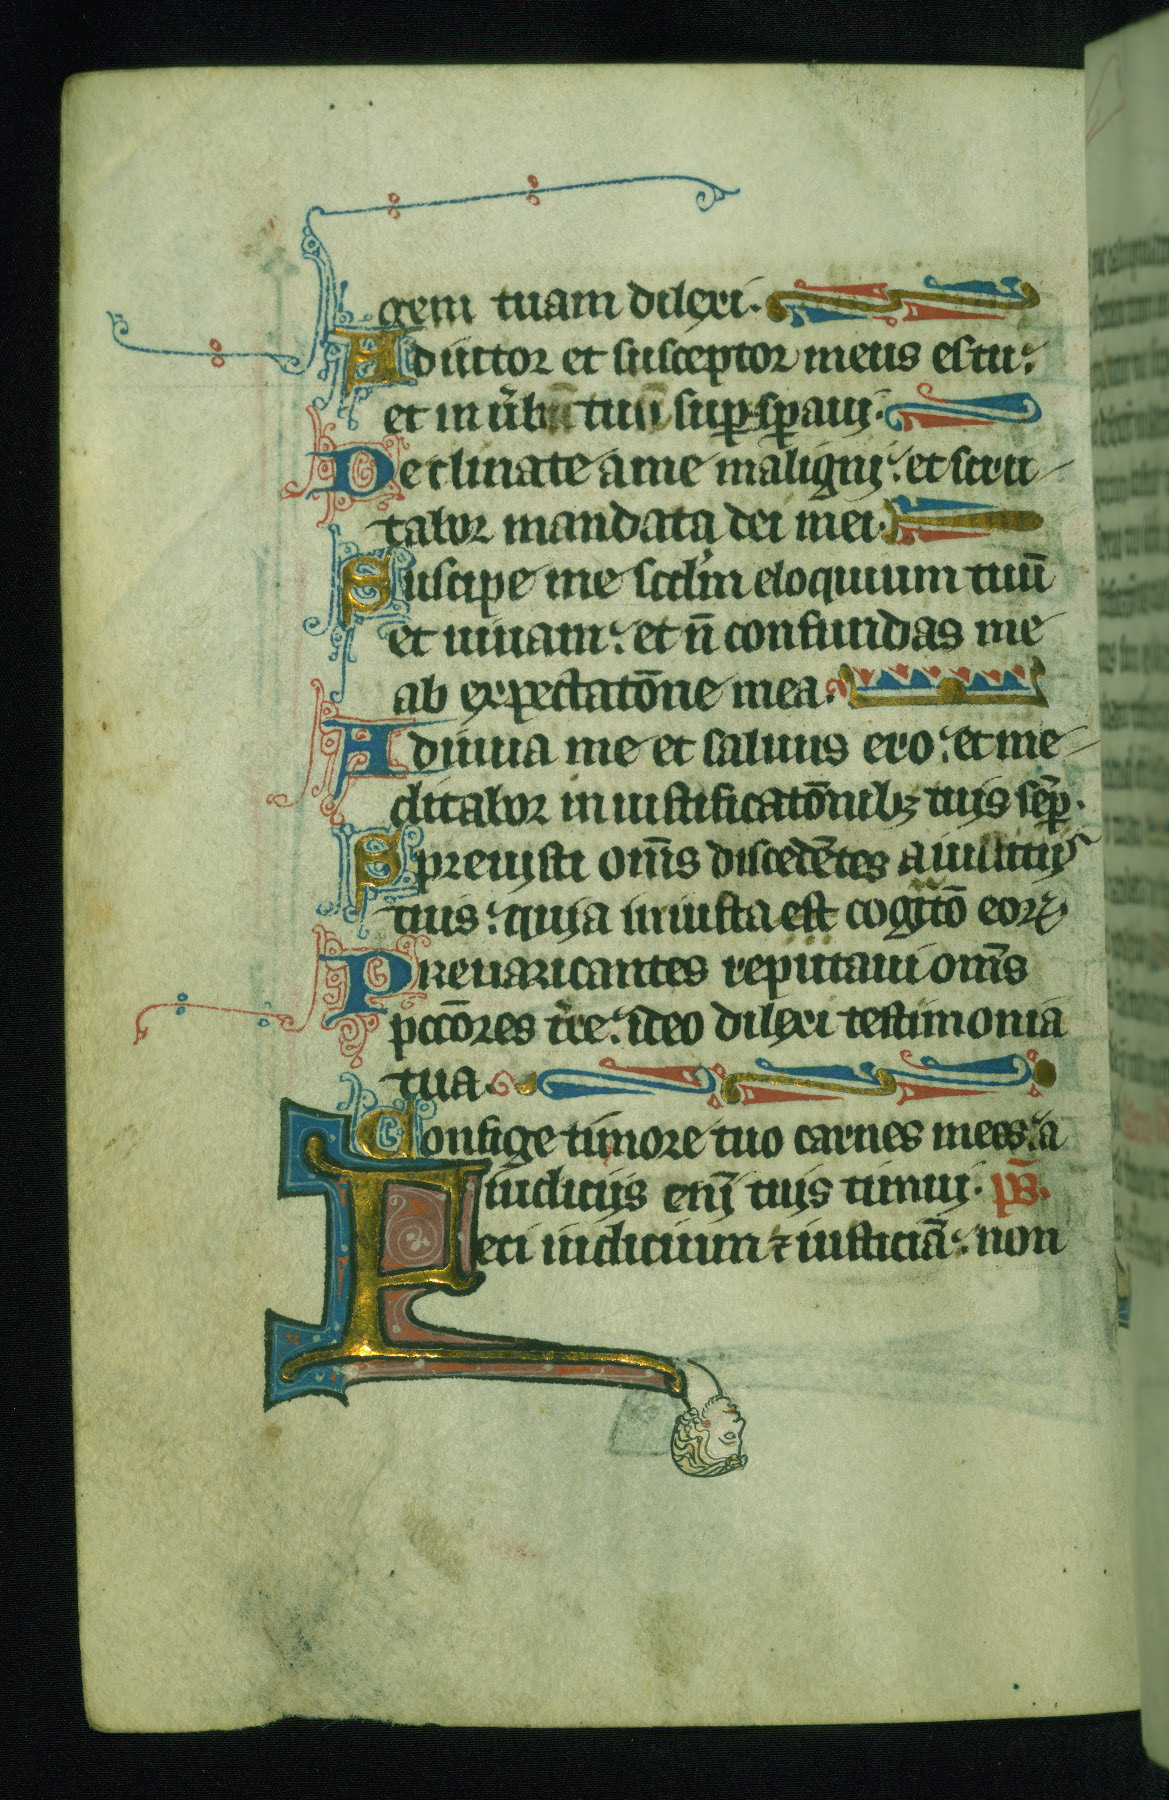 gem tuam dilexi.
Adiutor et susceptor meus es tu:
et in ũbũ tuũ sup speraui.
Declinate a me maligni: et scru
tabor mandata dei mei.
Suscipe me scdm eloquium tuũ
et uiuam: et ñ confundas me
ab expectatõne mea.
Adiuua me et saluus ero: et me
ditabor in iustificatõnibz tuis semp.
Spreuisti oms̃ discedẽtes a iudiciis
tuis: quia iniusta est cogitõ eoꝝ.
Preuaricantes reputaui oms̃
pccõres tr̃e: ideo dilexi testimonia
tua.
Confige timore tuo carnes meas: a
iudiciis eni tuis timui. ps̃.
Feci iudicium ⁊ iusticiã: non